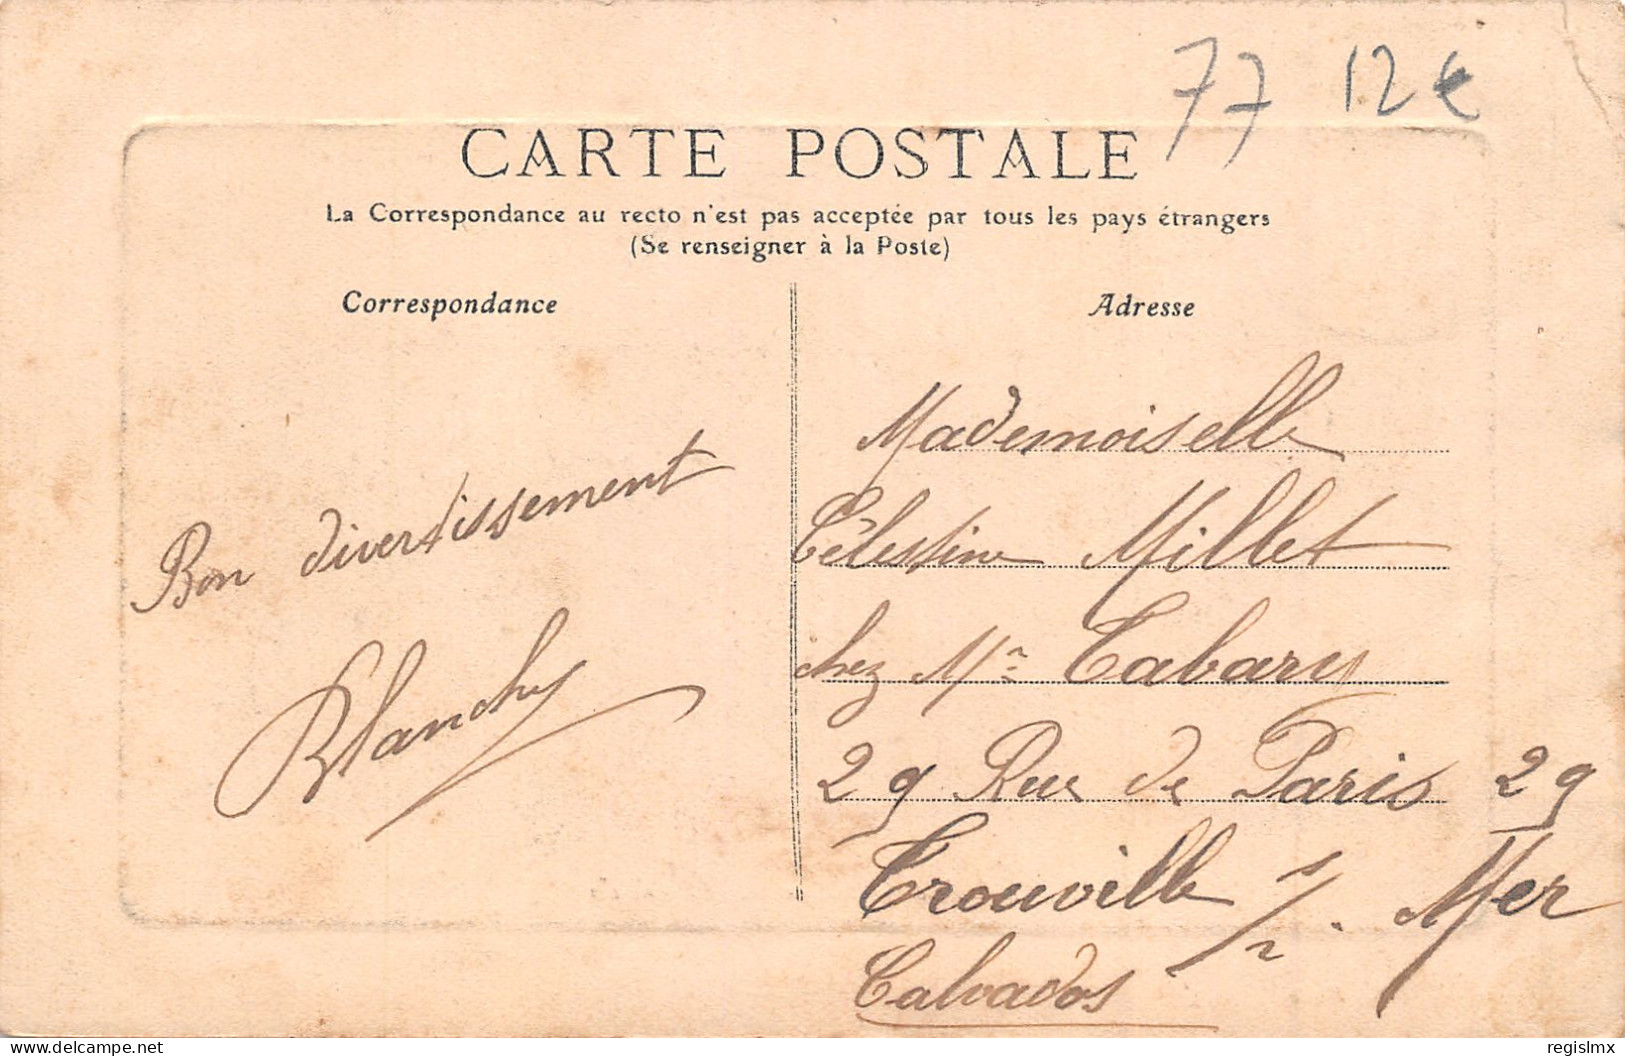 77 12€
CARTE POSTALE
La Correspondance au recto n'est pas acceptée par tous les pays étrangers
(Se renseigner à la Poste)
Correspondance
Adresse
Bon divertissement
Blanchy
Mademoiselle
Célestine Millet
chez Mr Tabary
29 Rue de Paris 29
Trouville s/ Mer
Calvados
www.delcampe.net
regislmx